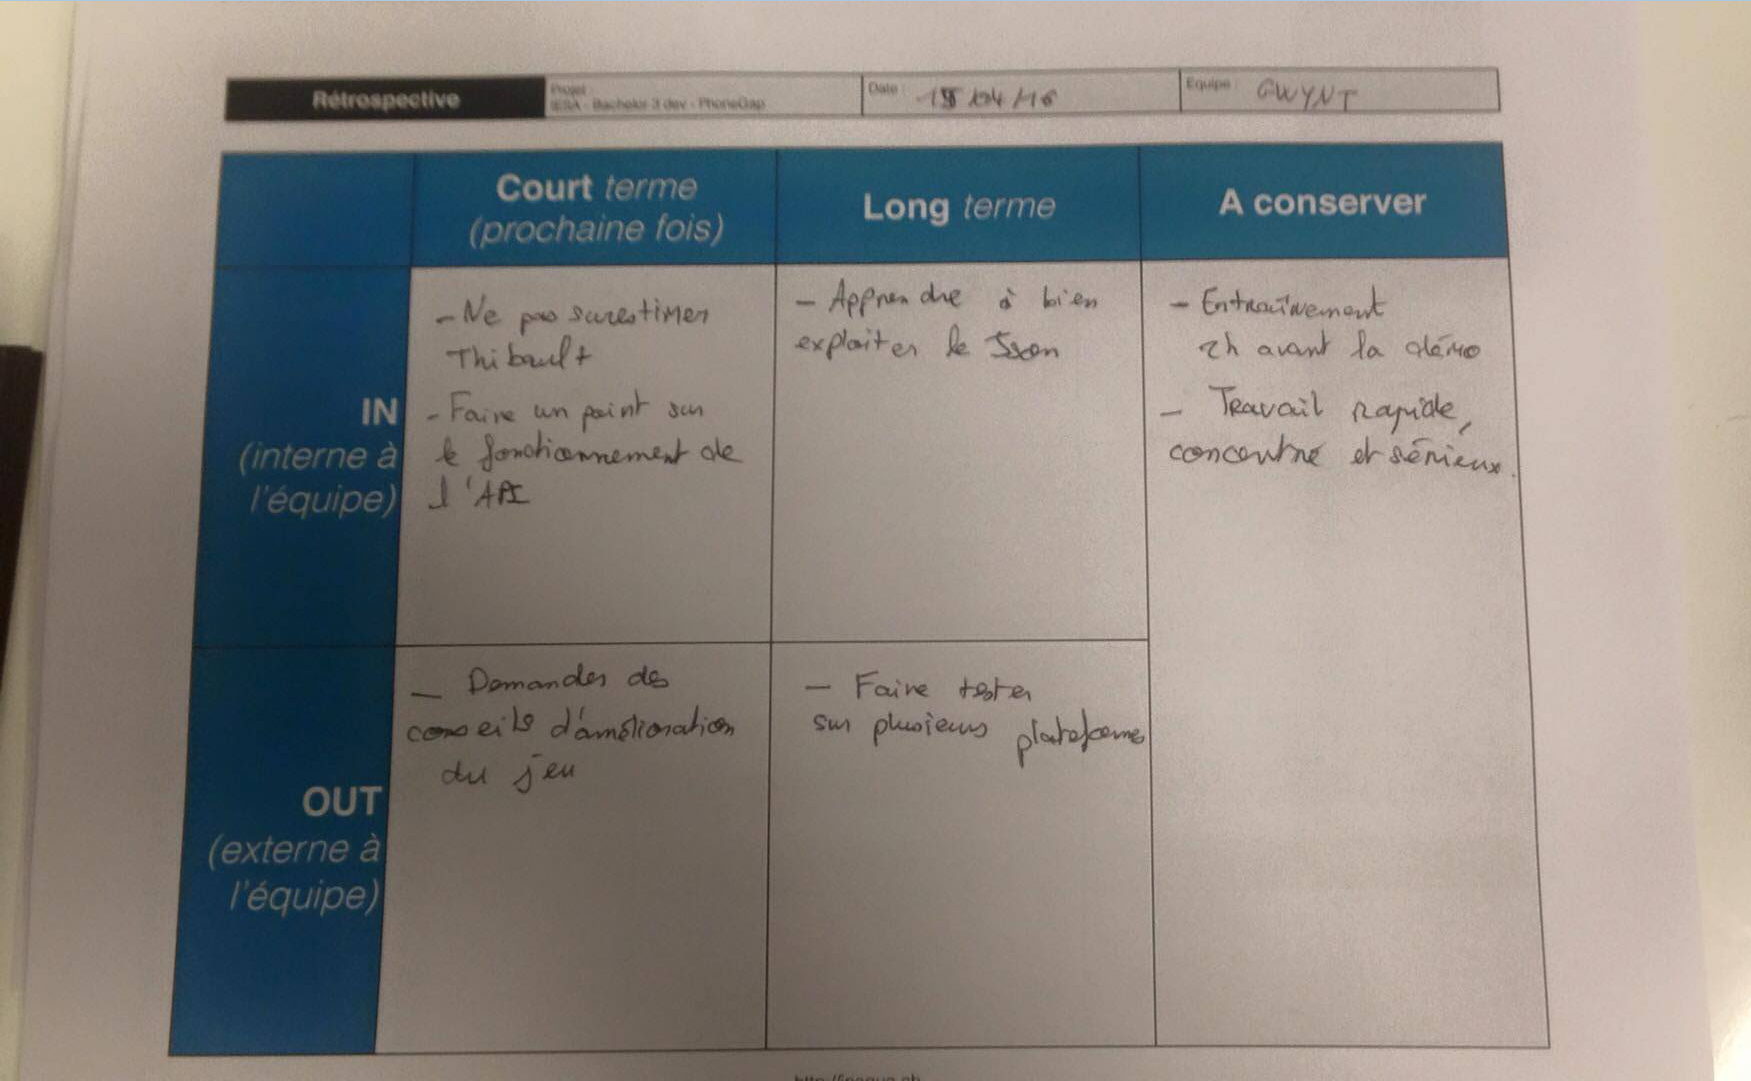 Rétrospective
Projet :
IESA - Bachelor 3 dev - PhoneGap
Date :
/04/16
Equipe :
GWYNT
Court terme
(prochaine fois)
Long terme
A conserver
IN
(interne à
l'équipe)
- Ne pas surestimer
Thibault
- Faire un point sur
le fonctionnement de
l'API
- Apprendre à bien
exploiter le Json
- Entraînement
2h avant la démo
- Travail rapide,
concentré et sérieux.
OUT
(externe à
l'équipe)
- Demander des
conseils d'amélioration
du jeu
- Faire tester
sur plusieurs plateformes